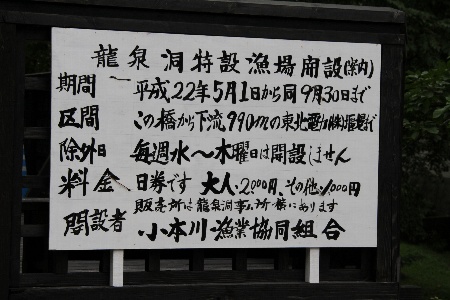 龍泉洞特設漁場開設(案内)
期間 平成22年5月1日から同9月30日まで
区間 この橋から下流990mの東北電力(株)堰堤まで
除外日 毎週水～木曜日は開設しません
料金 日券です 大人・2,000円、その他・1,000円
販売所は龍泉洞事ム所横にあります
開設者 小本川漁業協同組合